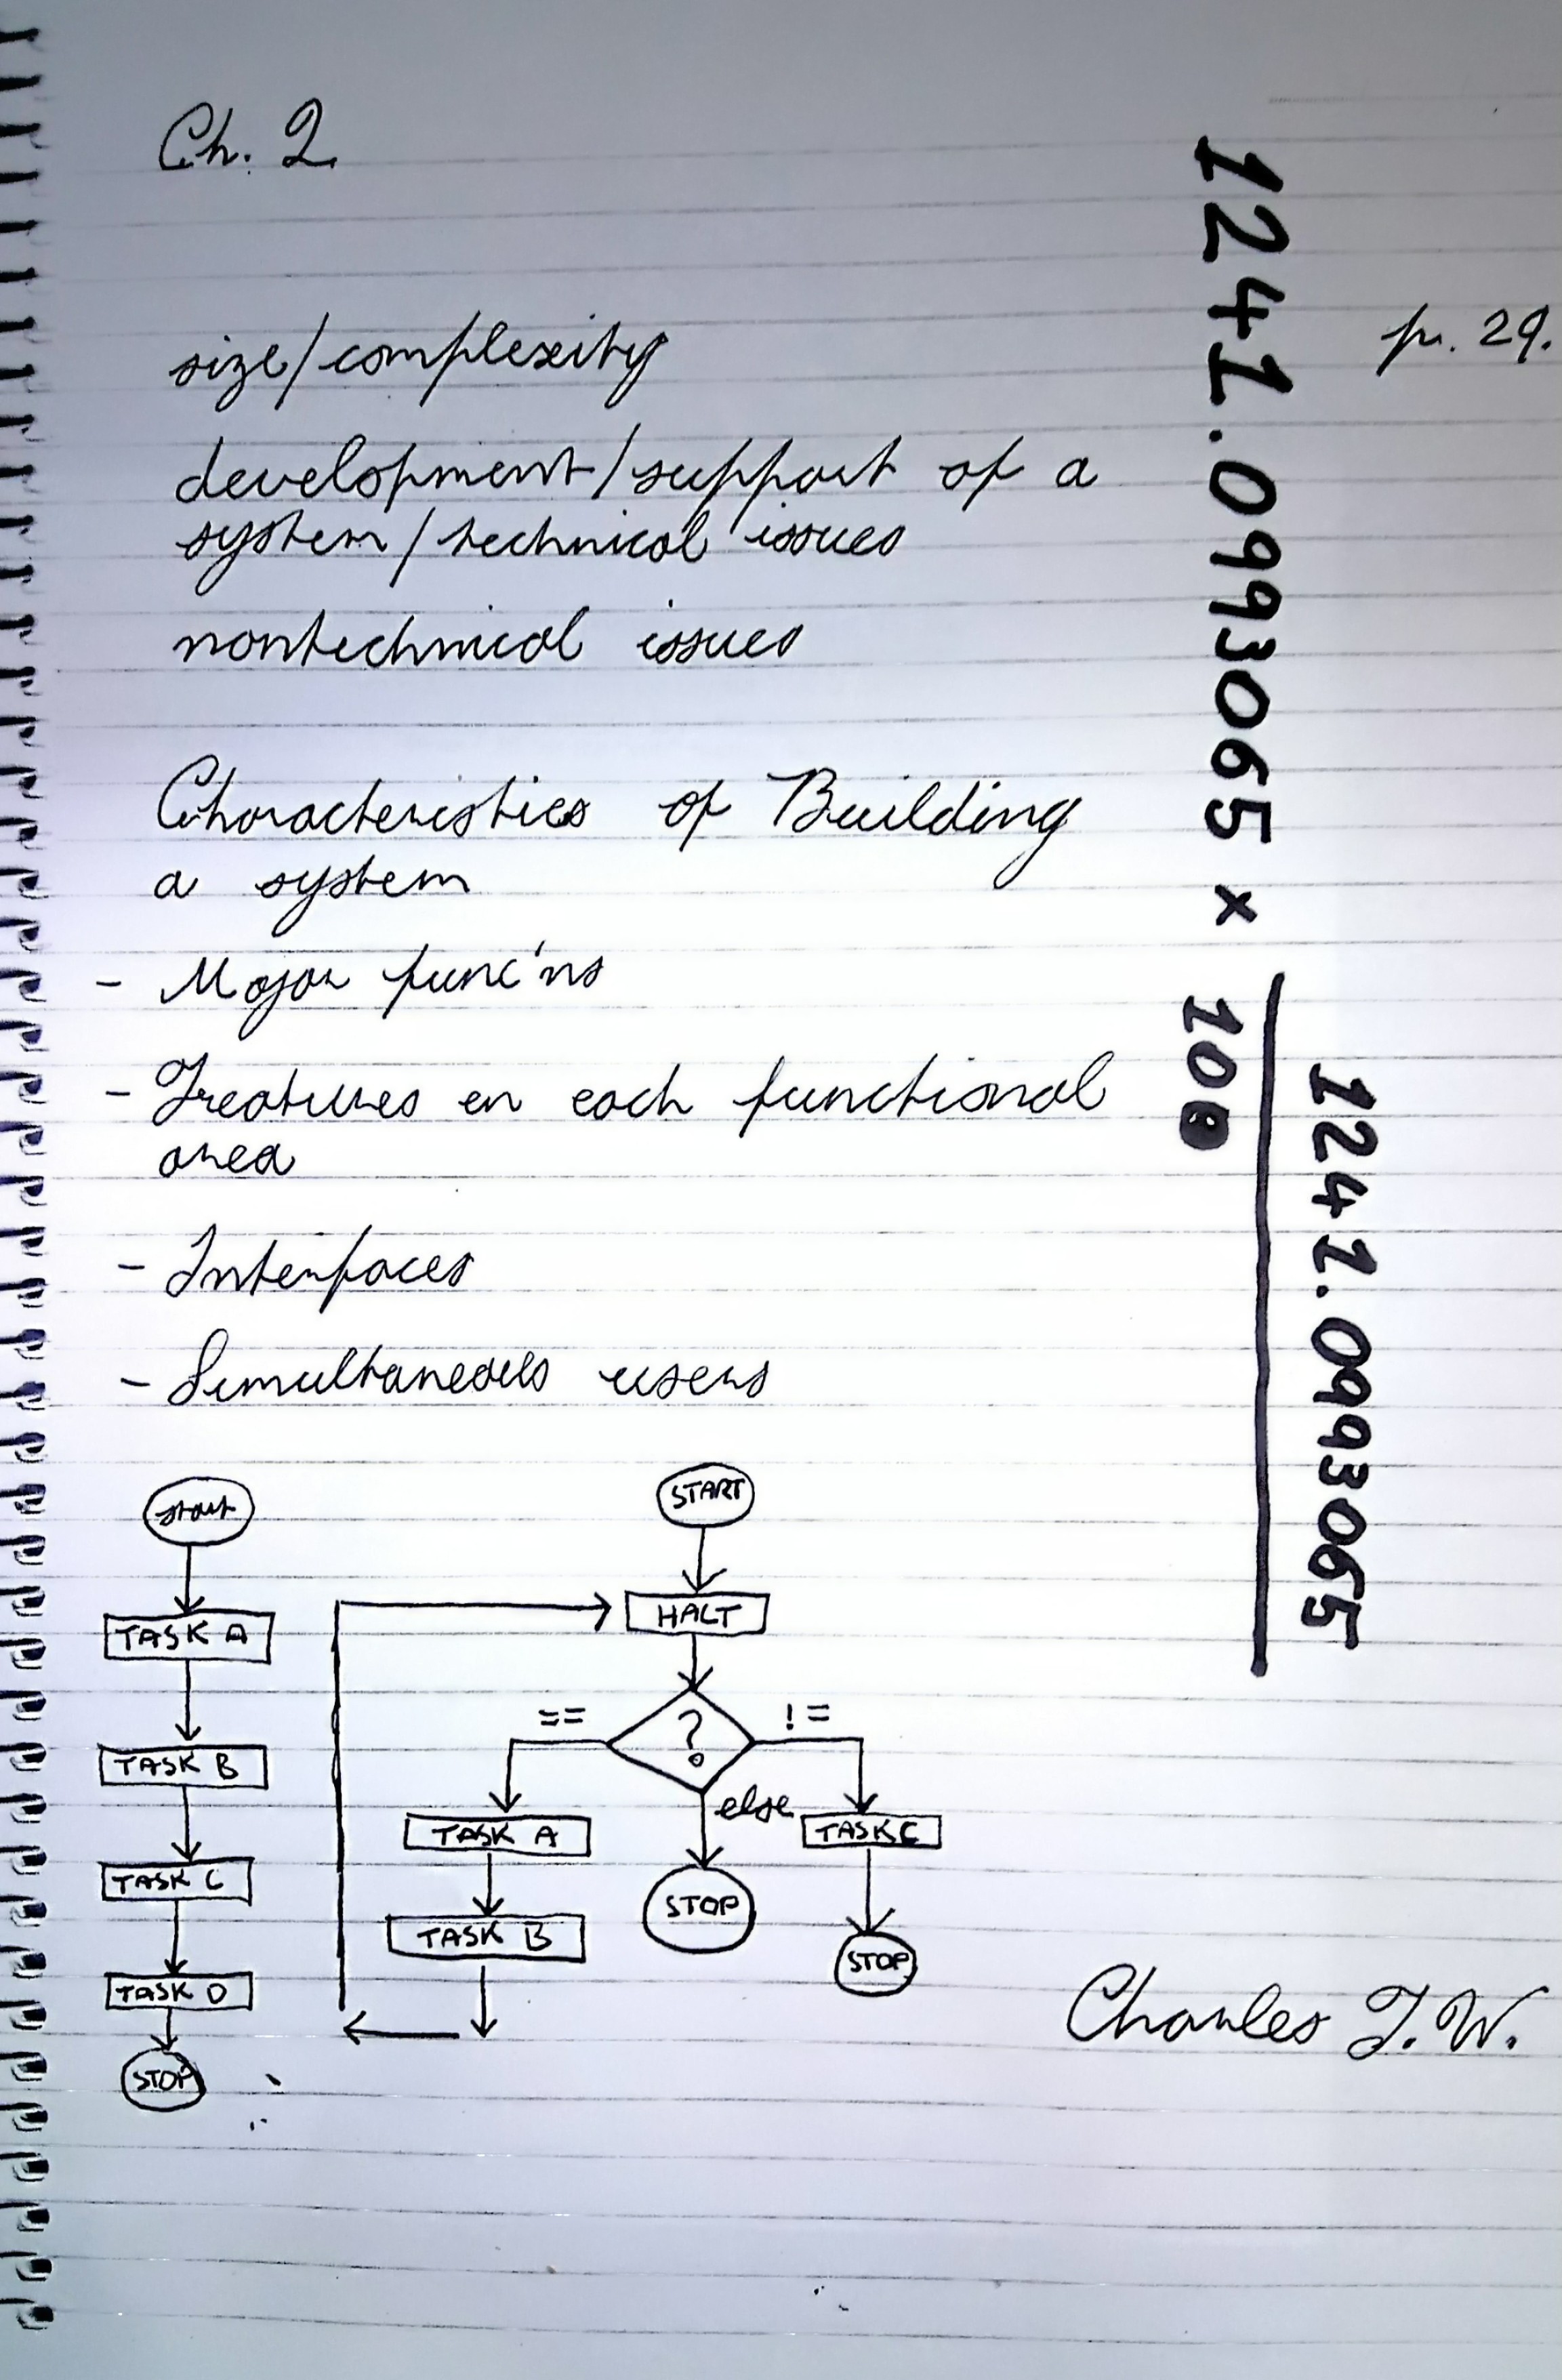 Ch. 2
p. 29.
size/complexity
development/support of a
system/technical issues
nontechnical issues
Characteristics of Building
a system
- Major func'ns
- Features in each functional
area
- Interfaces
- Simultaneous users
start
TASK A
TASK B
TASK C
TASK D
STOP
START
HALT
?
==
!=
else
TASK A
TASK B
STOP
TASK C
STOP
Charles T.W.
1241.0993065 x
10
1241.0993065